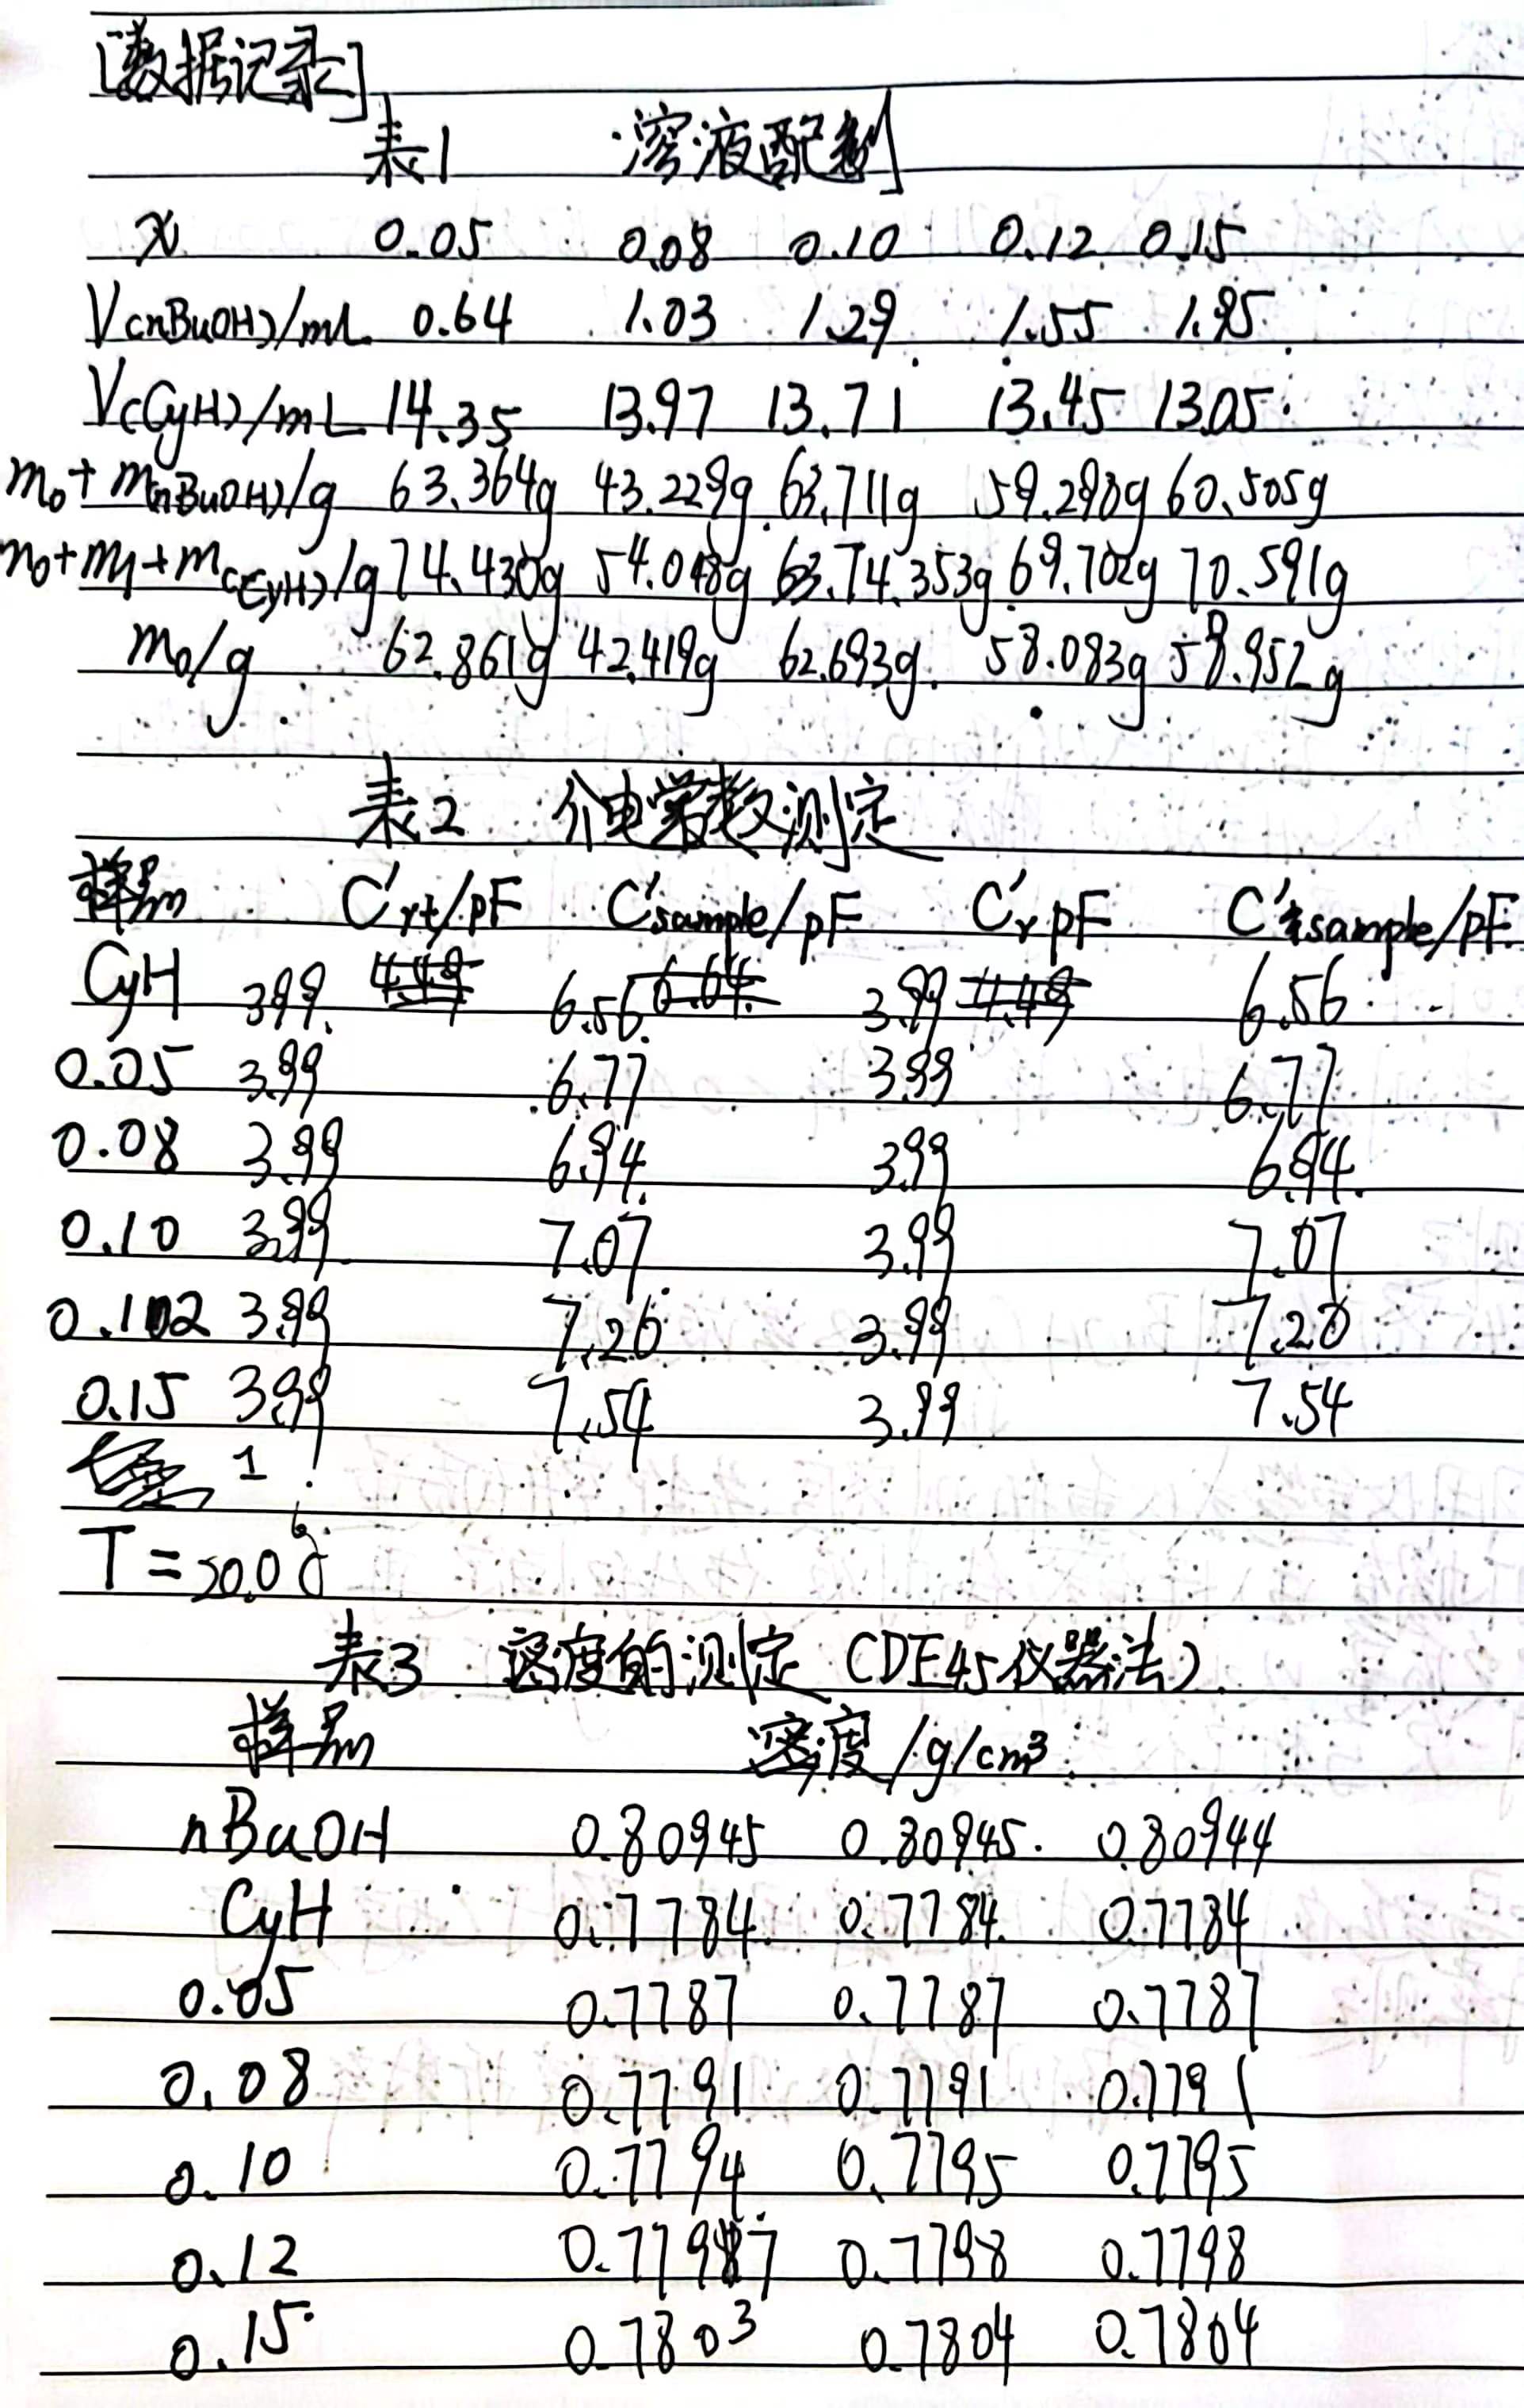 [数据记录]
表1 溶液配制
x 0.05 0.08 0.10 0.12 0.15
V(nBuOH)/mL 0.64 1.03 1.29 1.55 1.95
V(CyH)/mL 14.35 13.97 13.71 13.45 13.05
m₀+m(nBuOH)/g 63.364g 43.229g 63.711g 59.298g 60.505g
m₀+m₁+m(CyH)/g 74.430g 54.048g 74.353g 69.702g 70.591g
m₀/g 62.861g 42.419g 62.693g 58.083g 58.952g
表2 介电常数测定
样品 C'rt/pF C'sample/pF C'r pF C'sample/pF
CyH 3.99 4.49 6.56 6.64 3.99 4.49 6.56
0.05 3.99 6.77 3.99 6.77
0.08 3.99 6.94 3.99 6.94
0.10 3.99 7.07 3.99 7.07
0.12 3.99 7.20 3.99 7.20
0.15 3.99 7.54 3.99 7.54
1
T=20.0
表3 密度的测定 (DE45仪器法)
样品 密度/g/cm³
nBuOH 0.80945 0.80945 0.80944
CyH 0.7784 0.7784 0.7784
0.05 0.7787 0.7787 0.7787
0.08 0.7791 0.7791 0.7791
0.10 0.7794 0.7795 0.7795
0.12 0.7797 0.7798 0.7798
0.15 0.7803 0.7804 0.7804